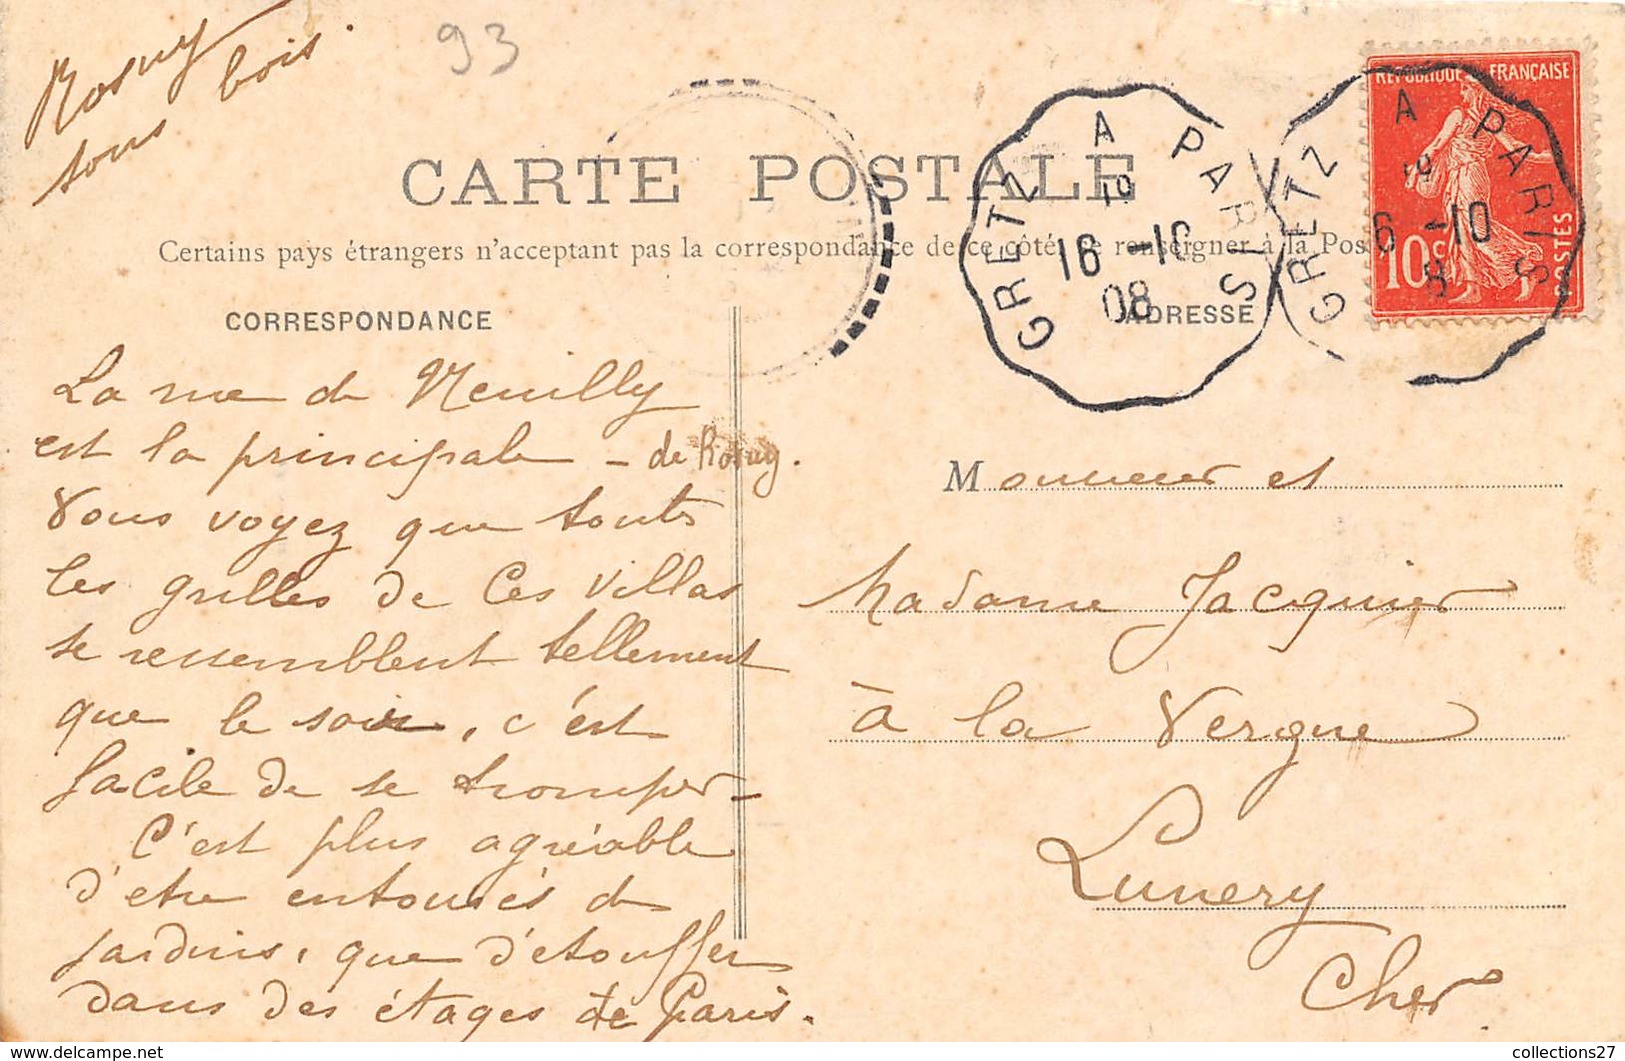 Rosny
sous bois.
93
CARTE POSTALE
Certains pays étrangers n'acceptant pas la correspondance de ce côté, se renseigner à la Pos
RÉPUBLIQUE FRANÇAISE
10c
POSTES
GRETZ A PARIS
16 -10
08
GRETZ A PARIS
6 -10
CORRESPONDANCE
ADRESSE
La rue de Neuilly
est la principale - de Rosny.
Vous voyez que toutes
les grilles de ces villas
se ressemblent tellement
que le soir, c'est
facile de se tromper -
C'est plus agréable
d'etre entourés de
jardins, que d'étouffer
dans des étages de Paris.
Monsieur et
Madame Jacquier
à la Vergne
Lunery
Cher
collections27